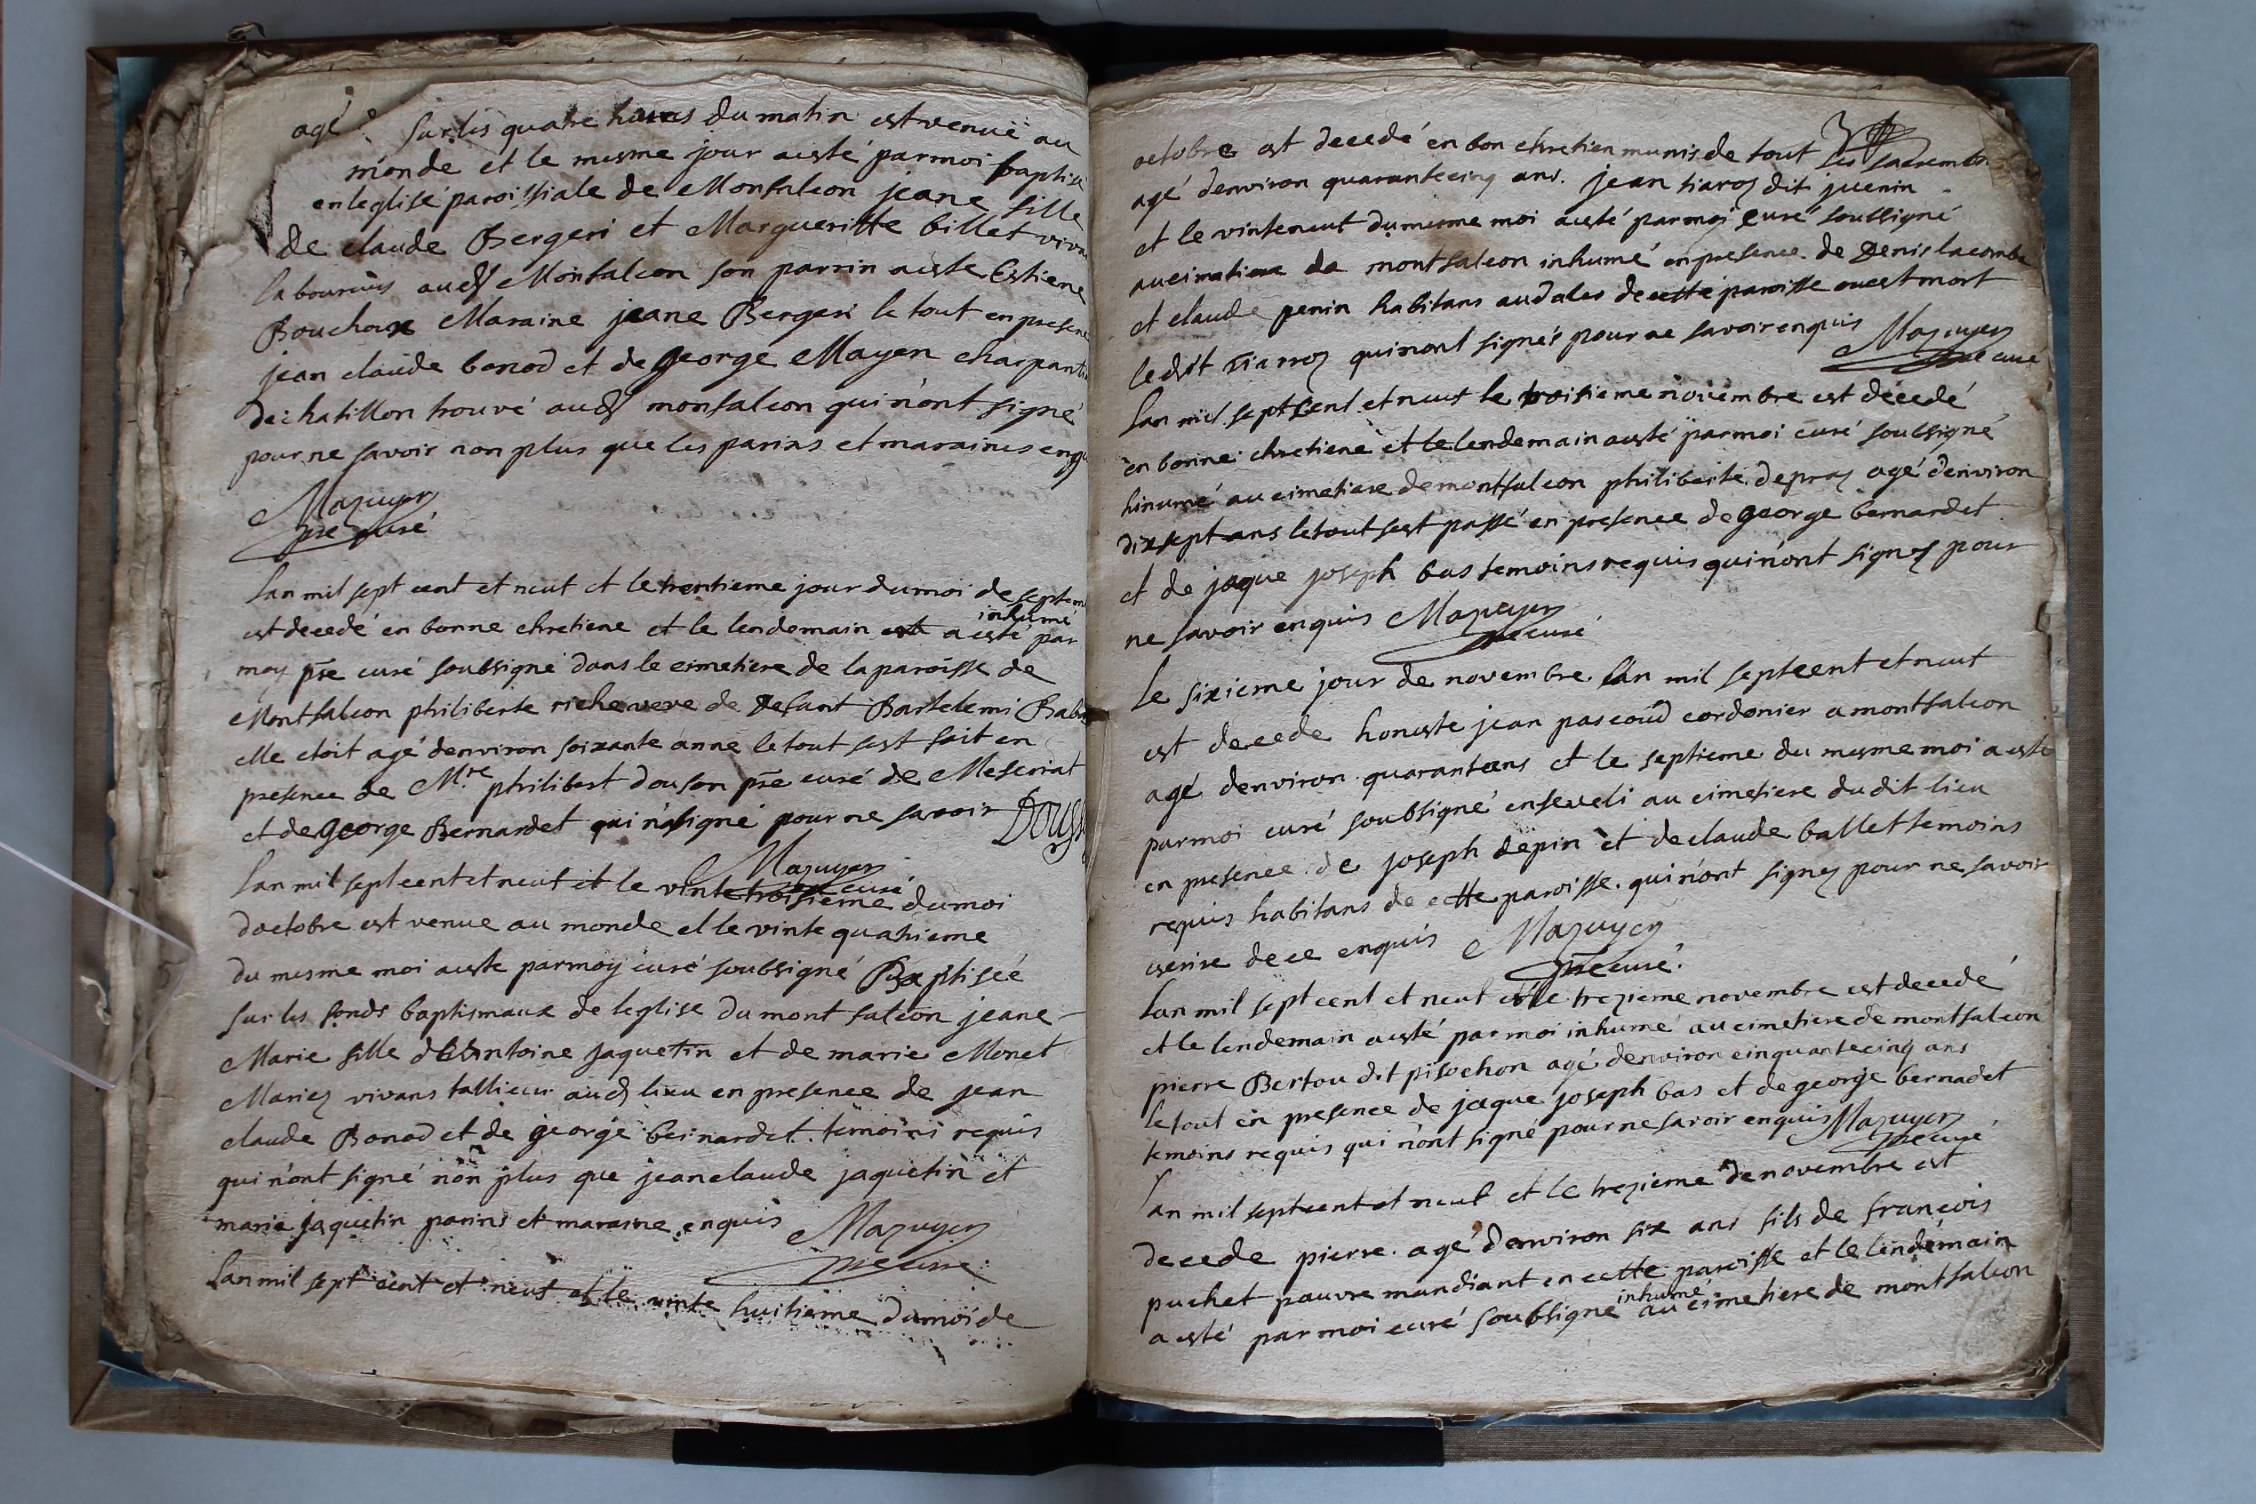 agé sur les quatre heures du matin est venuë au
monde et le mesme jour aesté parmoi baptisé
en leglise paroissiale de Monfalcon jeane fille
de claude Bergeri et Margueritte billet viva
laboureurs aud Monfalcon son parrin aeste Estiene
Bouchoux Maraine jeane Bergeri le tout en presene
jean claude bonod et de george Mayen charpanti
dechatillon trouvé aud monfalcon qui n'ont signé
pour ne savoir non plus que les parins et maraines enqu
Mazuyer
pre curé
Lan mil sept cent et neut et le trentieme jour du moi de septem
est decedé en bonne chretiene et le lendemain est a esté inhumé par
moy pre curé soubsigné dans le cimetiere de la paroisse de
Montfalcon philiberte riche veve de defant Bartelemi Bab
elle etoit agé denviron soixante anne le tout sest fait en
presence de Mre philibert douson pre curé de Meseriat
et de george Bernardet qui n'a signé pour ne savoir Douss
Mazuyer
pre curé
Lan mil septcent et neut et le vintetroisieme du moi
doctobre est venue au monde el le vinte quatrieme
du mesme moi aeste parmoy curé soubsigné Baptiséé
sur les fonds baptismaux de leglise du mont falcon jeane
Marie fille d'Antoine jaquetin et de marie Monet
Mariez vivans tallieur aud lieu en presence de jean
claude Bonod et de george beinardet temoins requis
qui n'ont signé non plus que jeanclaude jaquetin et
marie jaquetin parins et maraine enquis Mazuyer
pre curé
Lan mil sept cent et neuf et le vinte huitieme du moi de
octobre est decedé en bon chretien munis de tout les sacrements
agé denviron quarantecinq ans. jean tiaroz dit juenin
et le vinteneut du mesme moi aesté parmoi curé soubsigné
au cimatiere de montfalcon inhumé en presence de Denis lacombe
et claude penin habitans audales de cette paroisse ou est mort
le dit tiarroz qui n'ont signés pour ne savoir enquis Mazuyer
pre curé
Lan mil sept cent et neut le troisieme novembre est décedé
en bonne chretiene et le lendemain aesté parmoi curé soubsigné
hinumé au cimetiere de montfalcon philiberte depraz agé denviron
dixsept ans le tout sest passé en presence de george bernardet
et de jaque joseph bas temoins requis qui n'ont signez pour
ne savoir enquis Mazuyer
pre curé
Le sixieme jour de novembre lan mil septcent et neut
est decede honeste jean pascoud cordonier a montfalcon
agé denviron quarantæans et le septieme du mesme moi a este
parmoi curé soubsigné enseveli au cimetiere du dit lieu
en presence de joseph depin et de claude ballet temoins
requis habitans de cette paroisse qui n'ont signez pour ne savoir
escrire de ce enquis Mazuyer
pre curé
Lan mil sept cent et neut et le trezieme novembre est decedé
et le lendemain aesté parmoi inhumé au cimetiere de montfalcon
pierre Bertou dit pisochon agé denviron cinquantecinq ans
le tout en presence de jaque joseph bas et de george bernadet
temoins requis qui n'ont signé pour ne savoir enquis Mazuyer
pre curé
Lan mil septcent et neut et le trezieme de novembre est
decede pierre agé denviron six ans fils de francois
puchet pauvre mandiant en cette paroisse et le lendemain
a esté parmoi curé soubsigné inhumé au cimetiere de montfalcon